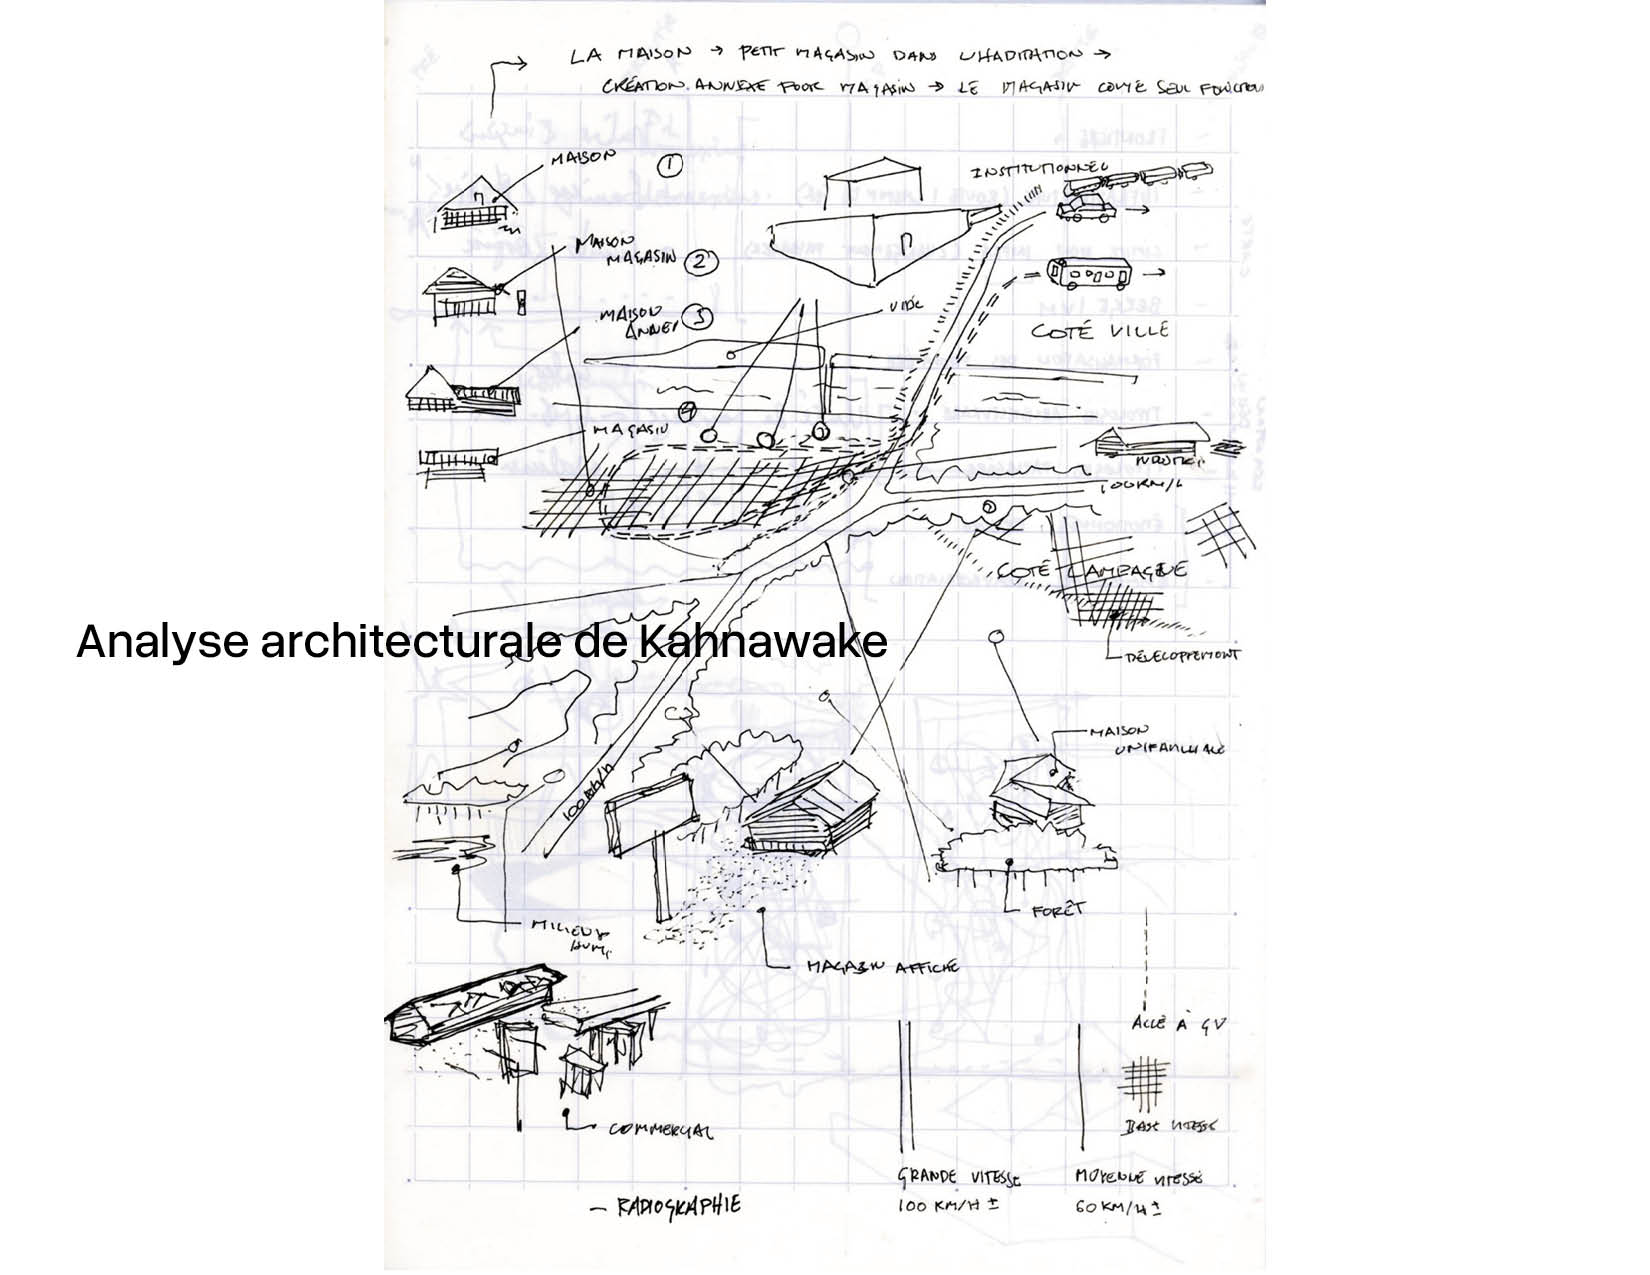 LA MAISON → PETIT MAGASIN DANS L'HABITATION →
CRÉATION ANNEXE POUR MAGASIN → LE MAGASIN COMME SEUL FONCTION
MAISON 1
INSTITUTIONNEL
MAISON
MAGASIN 2
VIDE
MAISON
ANNEX 3
COTÉ VILLE
4
MAGASIN
100 KM/H
COTÉ CAMPAGNE
Analyse architecturale de Kahnawake
DÉVELOPPEMENT
MAISON
UNIFAMILIALE
100 KM/H
FORÊT
MILIEU
HUMI
MAGASIN AFFICHE
COMMERCIAL
BASE VITESSE
GRANDE VITESSE
100 KM/H ±
MOYENNE VITESSE
60 KM/H ±
– RADIOGRAPHIE